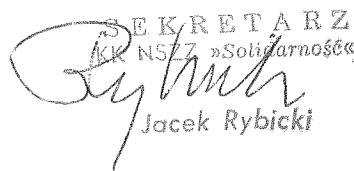 SEKRETARZ
KK NSZZ »Solidarność«
Rybicki
Jacek Rybicki